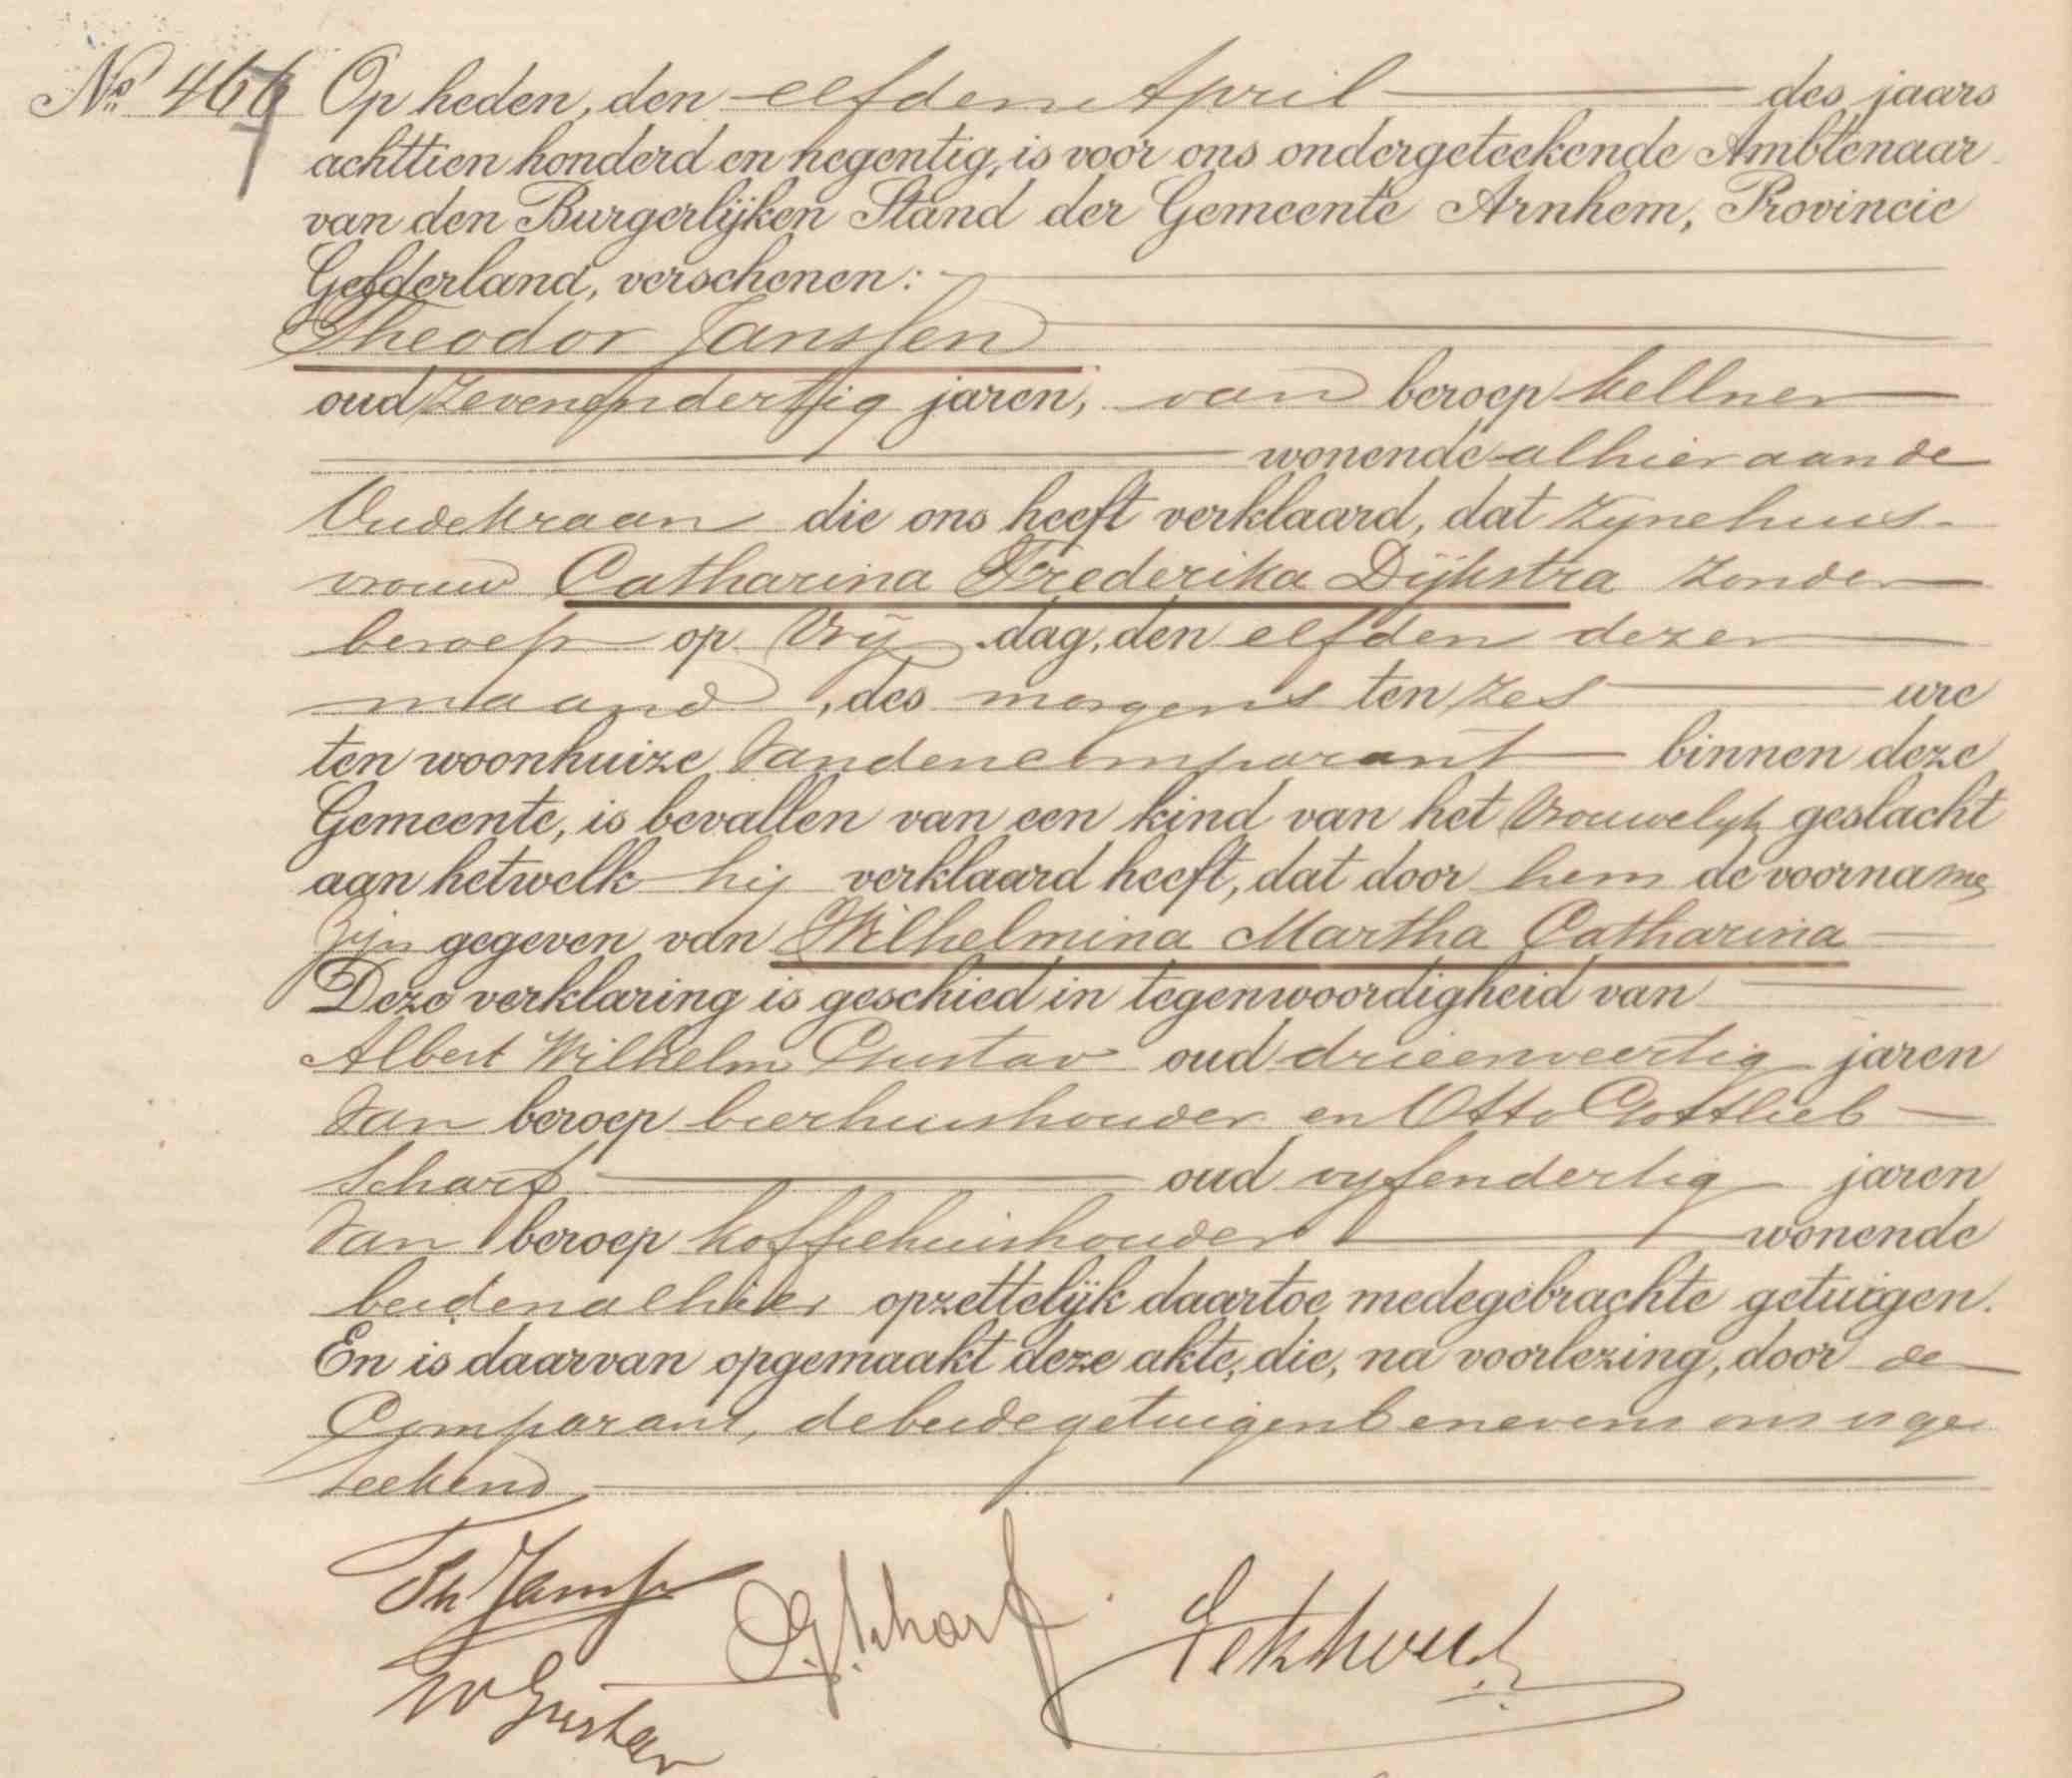 No 467 Op heden, den elfden April des jaars
achttien honderd en negentig, is voor ons ondergeteekende Ambtenaar
van den Burgerlijken Stand der Gemeente Arnhem, Provincie
Gelderland, verschenen:
Theodor Janssen
oud zevenendertig jaren, van beroep kellner
wonende alhier aan de
Oudekraan die ons heeft verklaard, dat zijne huis-
vrouw Catharina Frederika Dijkstra zonder
beroep op Vrij dag, den elfden dezer
maand, des morgens ten zes ure
ten woonhuize van den comparant binnen deze
Gemeente, is bevallen van een kind van het vrouwelijk geslacht
aan hetwelk hij verklaard heeft, dat door hem de voornamen
zijn gegeven van Wilhelmina Martha Catharina
Deze verklaring is geschied in tegenwoordigheid van
Albert Wilhelm Gustav oud drieenveertig jaren
van beroep bierhuishouder en Otto Gottlieb
Scharf oud vijfendertig jaren
van beroep koffiehuishouder wonende
beiden alhier opzettelijk daartoe medegebrachte getuigen.
En is daarvan opgemaakt deze akte, die, na voorlezing, door de
Comparant, de beide getuigen benevens ons is ge
teekend
Th Janssen O.G. Scharf
W Gustav